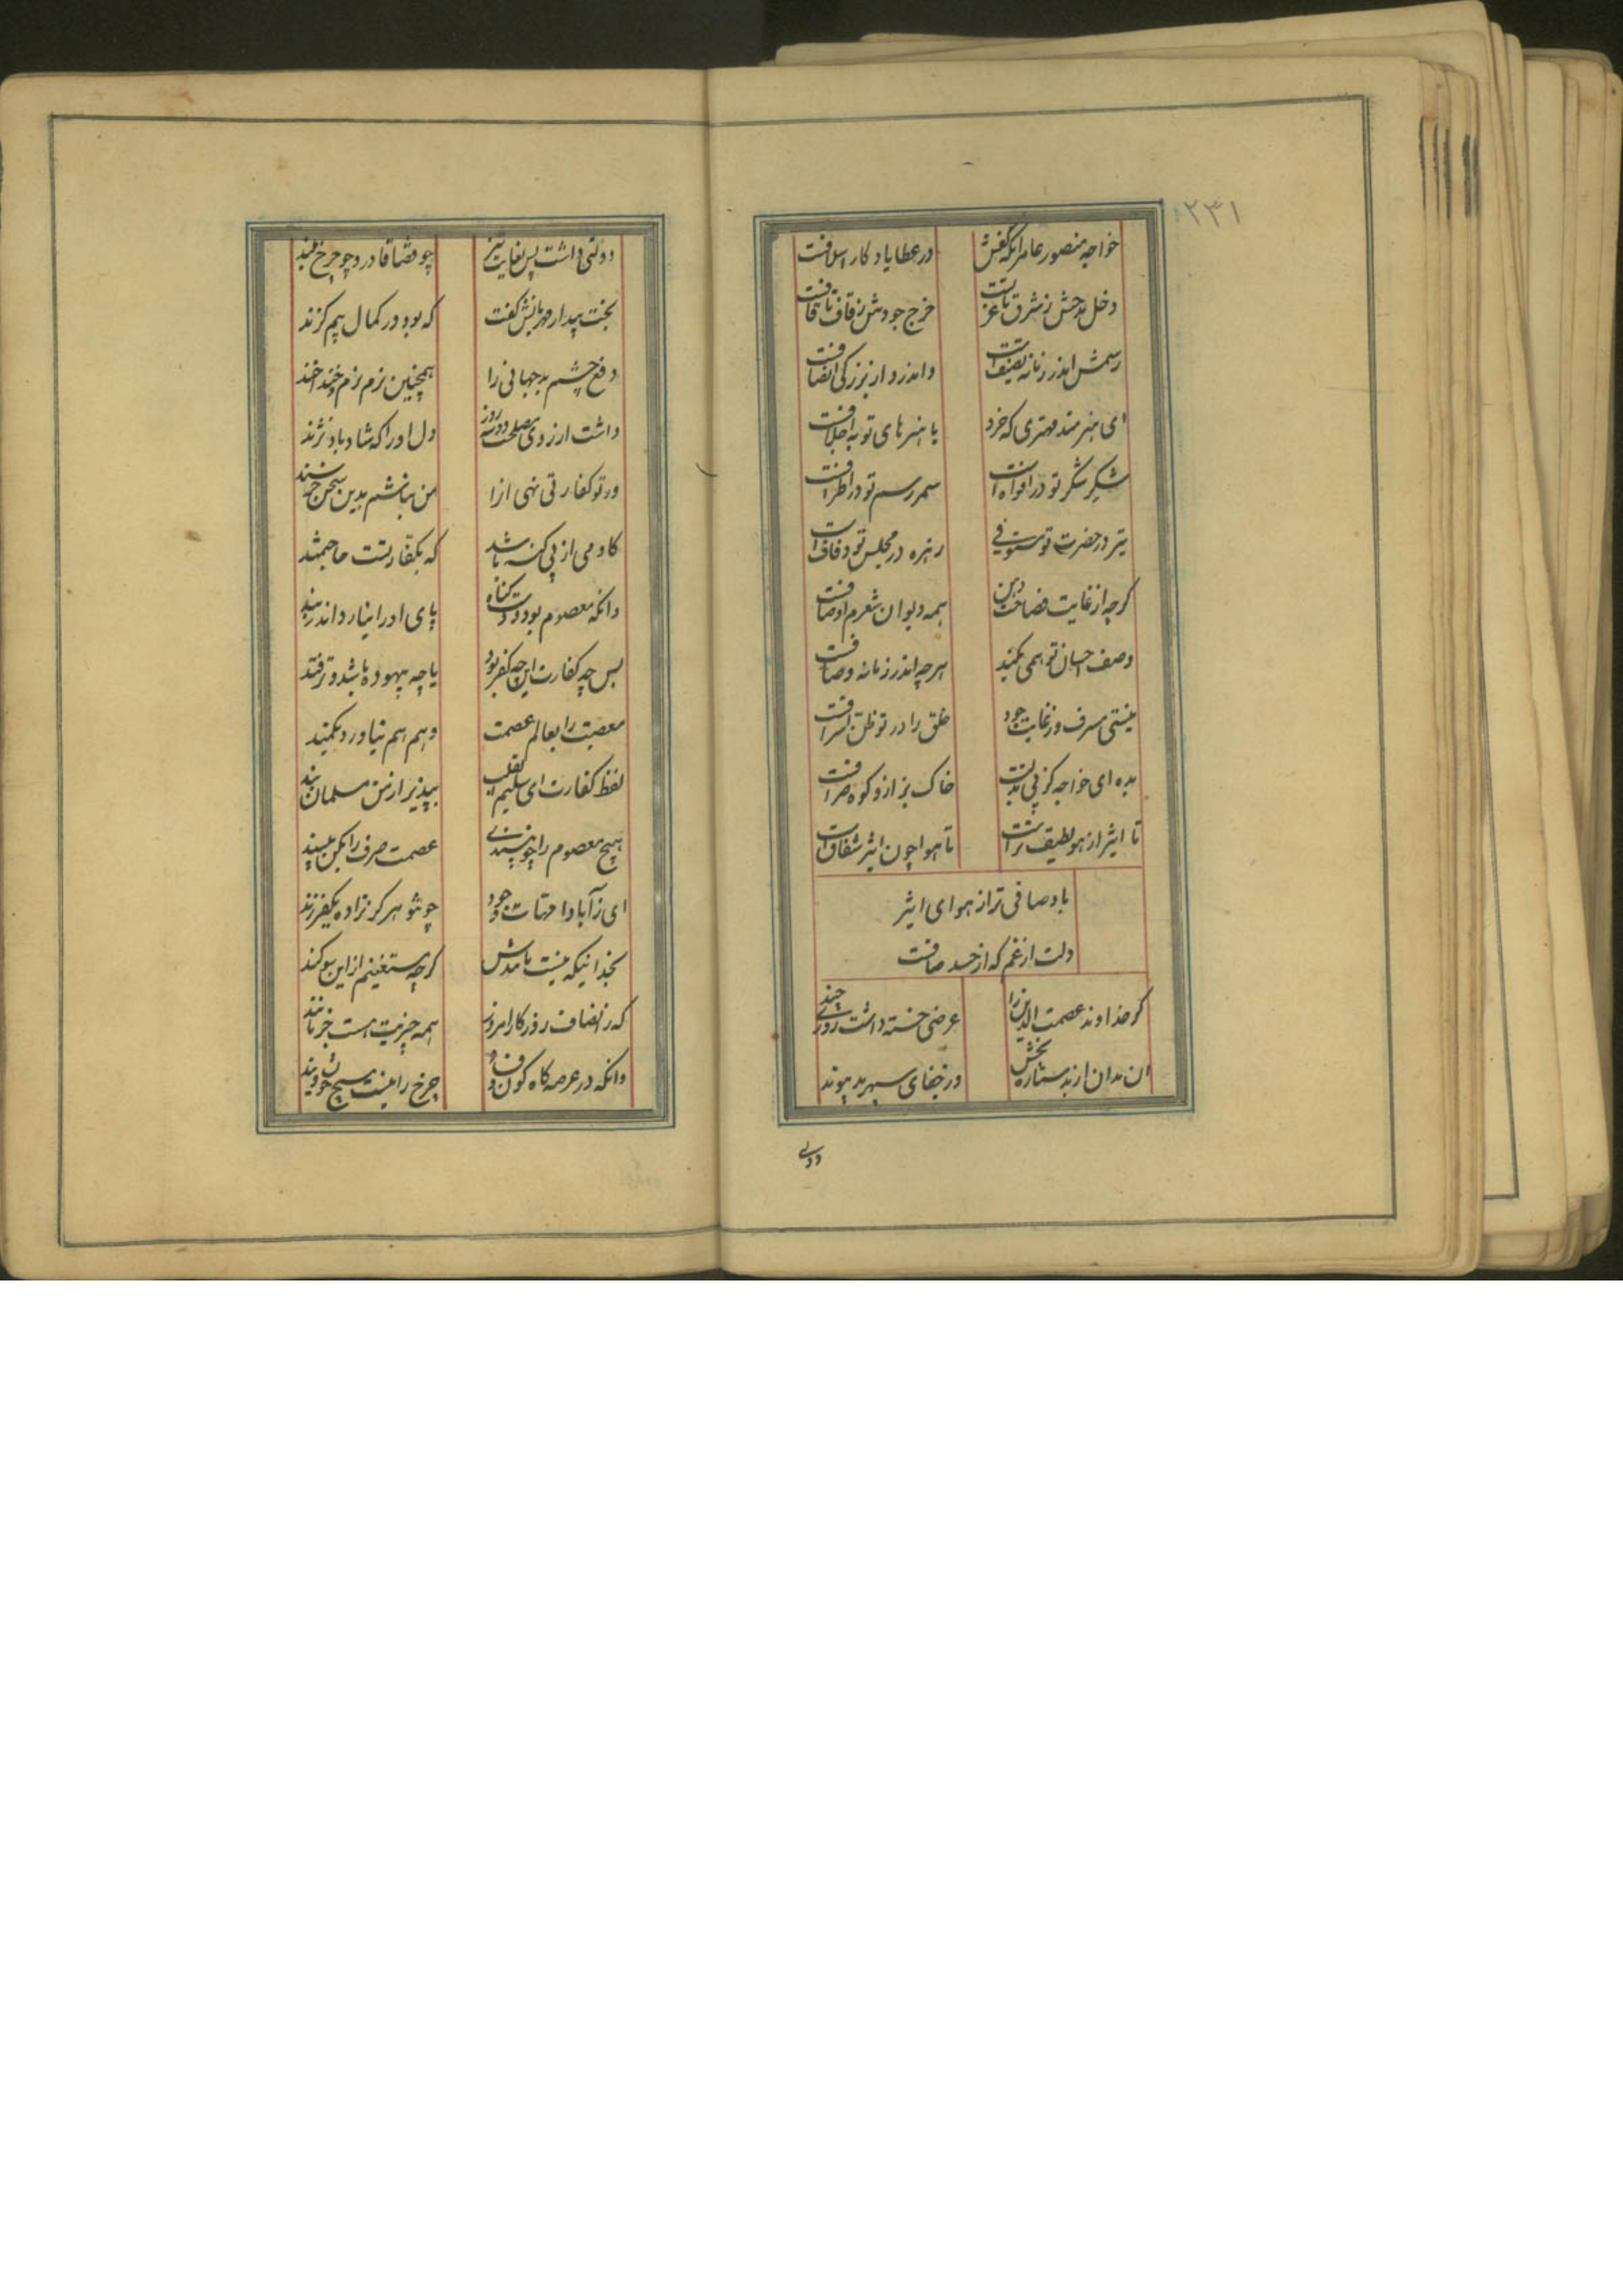 ۲۳۱
خواجه منصور عامر آنکه کفش
در عطا یادکار اسلافست
دخل مدحش ز شرق تا غربست
خرج جودش ز قاف تا قافست
رسمش اندر زمانه تصنیفست
واندرو از بزرکی انصافست
ای هنرمند مهتری که خرد
با هنرهای تو به اجلافست
شکر شکر تو در افواهست
سمر رسم تو در اطرافست
تیر در حضرت تو مستوفی
زهره در مجلس تو دفافست
کرچه از غایت فصاحت من
همه دیوان شعرم اوصافست
وصف احسان تو همی نکنند
هرچه اندر زمانه وصافست
نیستی مسرف و ز غایت جود
خلق را در تو ظن اسرافست
بده ای خواجه کز پی بذلت
خاک بزاز و کوه صرافست
تا اثیر از هوا لطیف‌ترست
تا هوا چون اثیر شفافست
باد صافی‌تر از هوای اثیر
دلت از غم که از حسد صافست
کر خداوند عصمت الدین را
عرضی خسته داشت روزی چند
آن مدان از بد ستاره بخش
در جفای سپهر بد پیوند
دولتی
دولتی داشت پس بغایت تیز
چو قضا قادر و چو چرخ بلند
بخت بیدار مهربانش کفت
که بود در کمال بیم کزند
دفع چشم بد جهانی را
همچنین نرم نرم و خنداخند
داشت ارزوی مصلحت دو سه روز
دل او را که شاد باد نژند
ور تو کفارتی نهی انرا
من نباشم بدین سخن خرسند
کادمی از پی کنه باشد
که بکفارتست حاجتمند
وانکه معصوم بود دست کناه
پای او را نیارد اندر بند
پس چه کفارت این چه کفر بود
یا چه بیهوده باشد و ترفند
معصیت را بعالم عصمت
وهم هم نیاورد بکمند
لفظ کفارت ای سلیم القلب
بپذیر از من مسلمان پند
هیچ معصوم را چو نپسندی
عصمت صرف را مکن مپسند
ای ز آبا و امهات وجود
چو تو هرکز نزاده یک فرزند
بخدائیکه نیست مانندش
کرچه مستغنیم از این سوکند
که ز انصاف روزکار امروز
همه چیزیت هست جز مانند
وانکه در عرصه کاه کون و فساد
چرخ را نیست هیچ خویشاوند